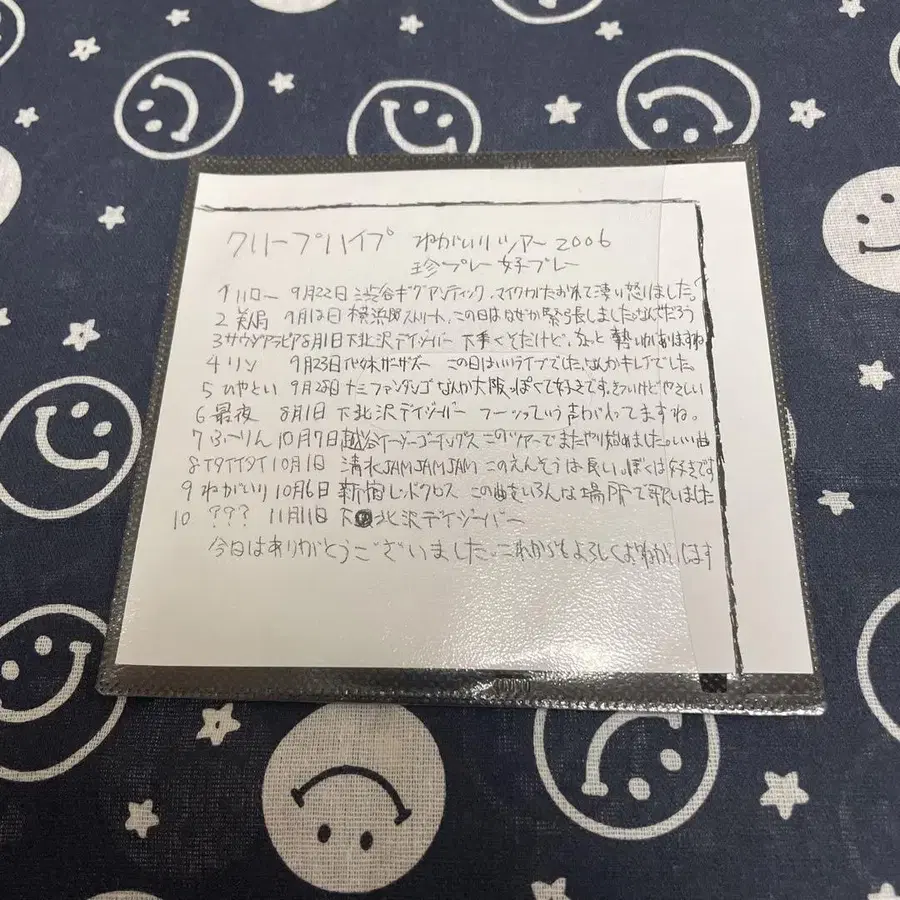 クリープハイプ ねがいりツアー2006
珍プレー好プレー
1 ハロー 9月22日 渋谷ギグアンティック、マイクがたおれて凄い怒りました。
2 美人局 9月12日 横浜 ストリート、この日はなぜか緊張しました。なんでだろう
3 サウジアラビア 8月1日 下北沢デイジーバー 下手くそだけど、 勢いがありますね
4 リン 9月23日 代々木ザーザズー この日はいいライブでした。なんかキレイでした。
5 ひやとい 9月28日 十三ファンダンゴ なんか大阪っぽくて好きです。 やさしい
6 最夜 8月1日 下北沢デイジーバー フーっっていう声が入ってますね。
7 ふーりん 10月7日 越谷イージーゴーイングス このツアーでまたやり始めました。いい曲
8 イタイイタイ 10月1日 清水JAMJAMJAM このえんそうは長い。ぼくは好きです
9 ねがいり 10月6日 新宿レッドクロス この曲をいろんな場所で歌いました
10 ??? 11月11日 下北沢デイジーバー
今日はありがとうございました。これからもよろしくおねがいします